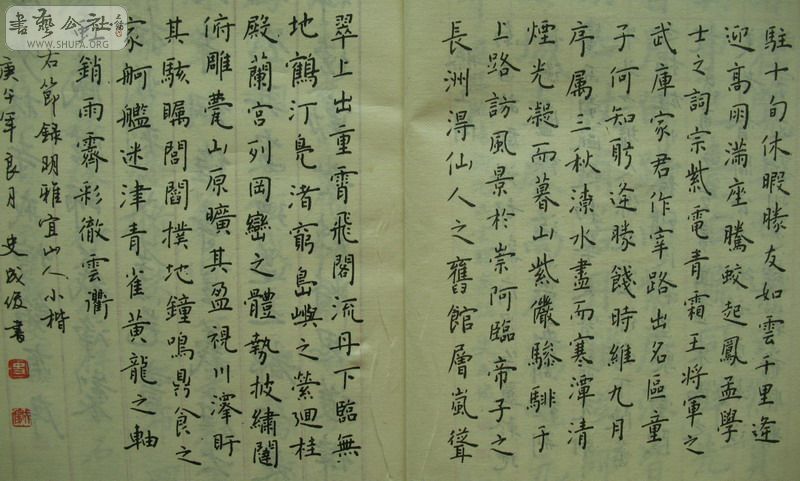 駐十旬休暇勝友如雲千里逢
迎高朋滿座騰蛟起鳳孟學
士之詞宗紫電青霜王將軍之
武庫家君作宰路出名區童
子何知躬逢勝餞時維九月
序属三秋潦水盡而寒潭清
煙光凝而暮山紫儼驂騑于
上路訪風景於崇阿臨帝子之
長洲得仙人之舊館層嵐聳
翠上出重霄飛閣流丹下臨無
地鶴汀鳧渚窮島嶼之縈迴桂
殿蘭宮列岡巒之體勢披繡闥
俯雕甍山原曠其盈視川澤盱
其駭矚閭閻撲地鐘鳴鼎食之
家舸艦迷津青雀黃龍之軸
銷雨霽彩徹雲衢
右節錄明雅宜山人小楷
庚午年良月 史成俊書
書藝公社
WWW.SHUFA.ORG